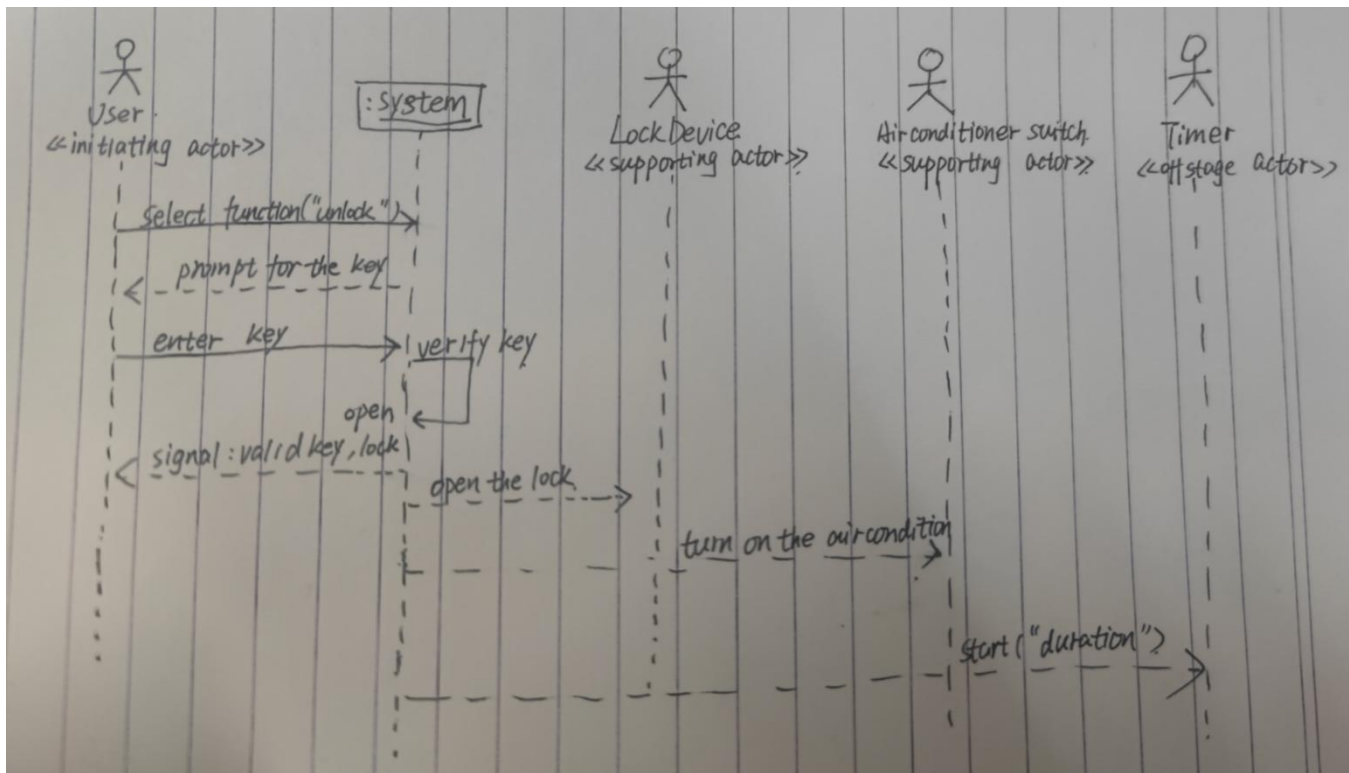 User.
<<initiating actor>>
:system
Lock Device
<<supporting actor>>
Air conditioner switch
<<supporting actor>>
Timer
<<offstage actor>>
select function("unlock")
prompt for the key
enter key
verify key
open
signal:valid key,lock
open the lock
turn on the aircondition
start("duration")